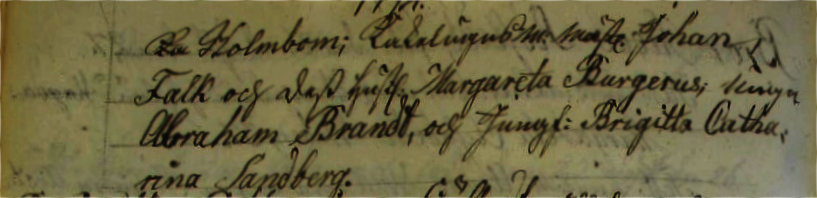 Holmbom; Kakelugns M. Mäst: Johan
Falk och dess Hust: Margareta Burgerus; Ungn
Abraham Brandt, och Jungf: Brigitta Catha,
rina Sandberg.